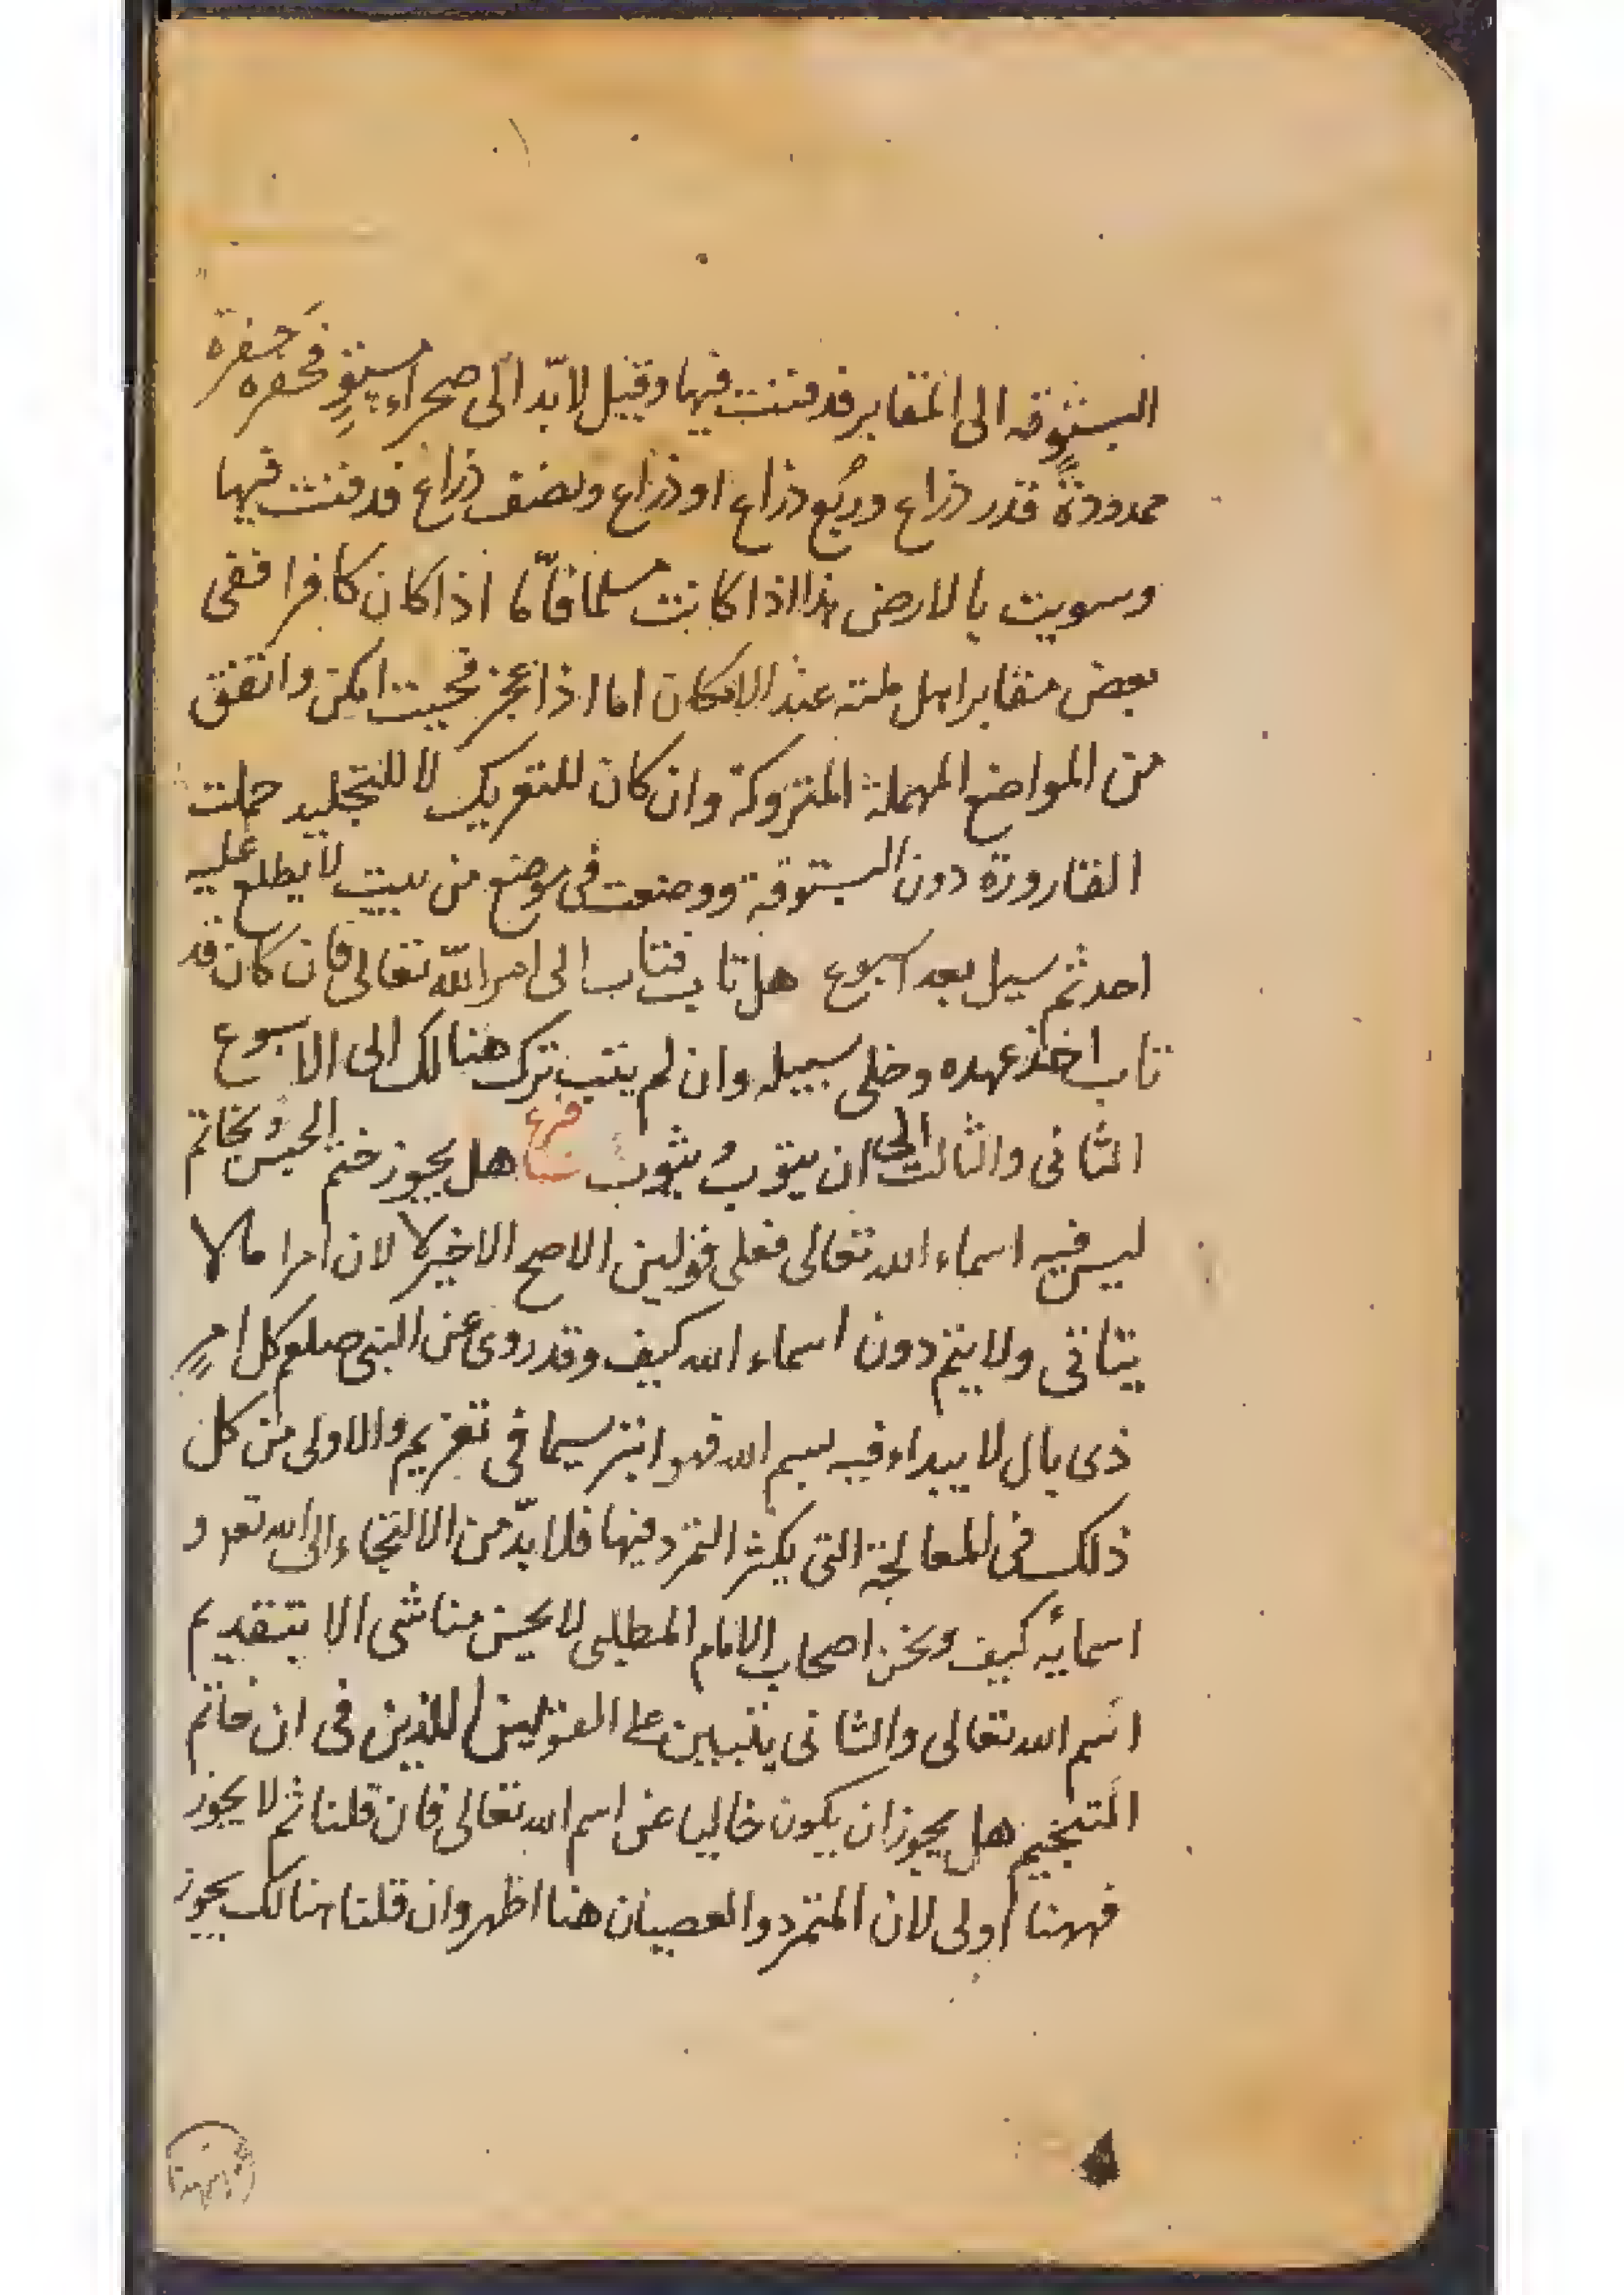 البستوقه الى المقابر فدفنت فيها وقيل لا بدّ الى صحراء مستوٍ فحفره حفرة
ممدودةً قدر ذراع وربُع ذراع او ذراع ونصف ذراع فدفنت فيها
وسويت بالارض هذا اذا كانت مسلما فاما اذا كان كافرا ففى
بعض مقابر اهل ملته عند الامكان اما اذا عجز فحيث امكن واتفق
من المواضع المهملة المتروكة وان كان للتعريك لا للتجليد حملت
القارورة دون البستوقة ووضعت فى موضع من بيت لا يطلع عليه
احد ثم سيل بعد اسبوع هل تاب فتاب الى امر الله تعالى فان كان قد
تاب اخذ عهده وخلى سبيله وان لم يتب ترك هنالك الى الاسبوع
الثانى والثالث الى ان يتوب يثوب فرع هل يجوز ختم الحبس بخاتم
ليس فيه اسماء الله تعالى فعلى قولين الاصح الاخير لا لان امرا ما لا
يتاتى ولا يتم دون اسماء الله كيف وقد روى عن النبى صلعم كل امرٍ
ذى بال لا يبداء فيه ببسم الله فهو ابتر سيما فى تعزيم والاولى من كل
ذلك فى المعالجة التى يكثر التمرد فيها فلا بدّ من الالتجاء الى الله تعه و
اسمائه كيف ونحن اصحاب الامام المطلبى لا يحسن منا شى الا بتقديم
اسم الله تعالى والثانى ينبيين على القولين للذين فى ان خاتم
التبخيم هل يجوز ان يكون خاليا عن اسم الله تعالى فان قلنا ثم لا يجوز
فههنا اولى لان التمرد والعصيان هنا اظهر وان قلنا هنالك يجوز